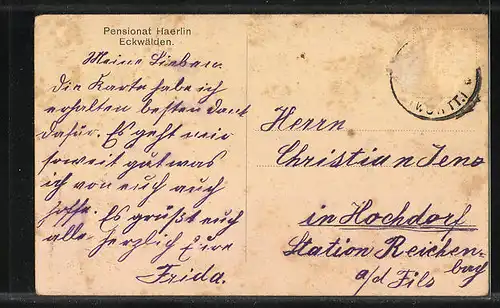 Pensionat Haerlin
Eckwälden.
Meine Lieben.
Die Karte habe ich
erhalten besten Dank
dafür. Es geht mir
soweit gut was
ich von euch auch
hoffe. Es grüßt euch
alle herzlich Eure
Frida.
Herrn
Christian Jena
in Hochdorf
Station Reichen-
bach
a/d Fils